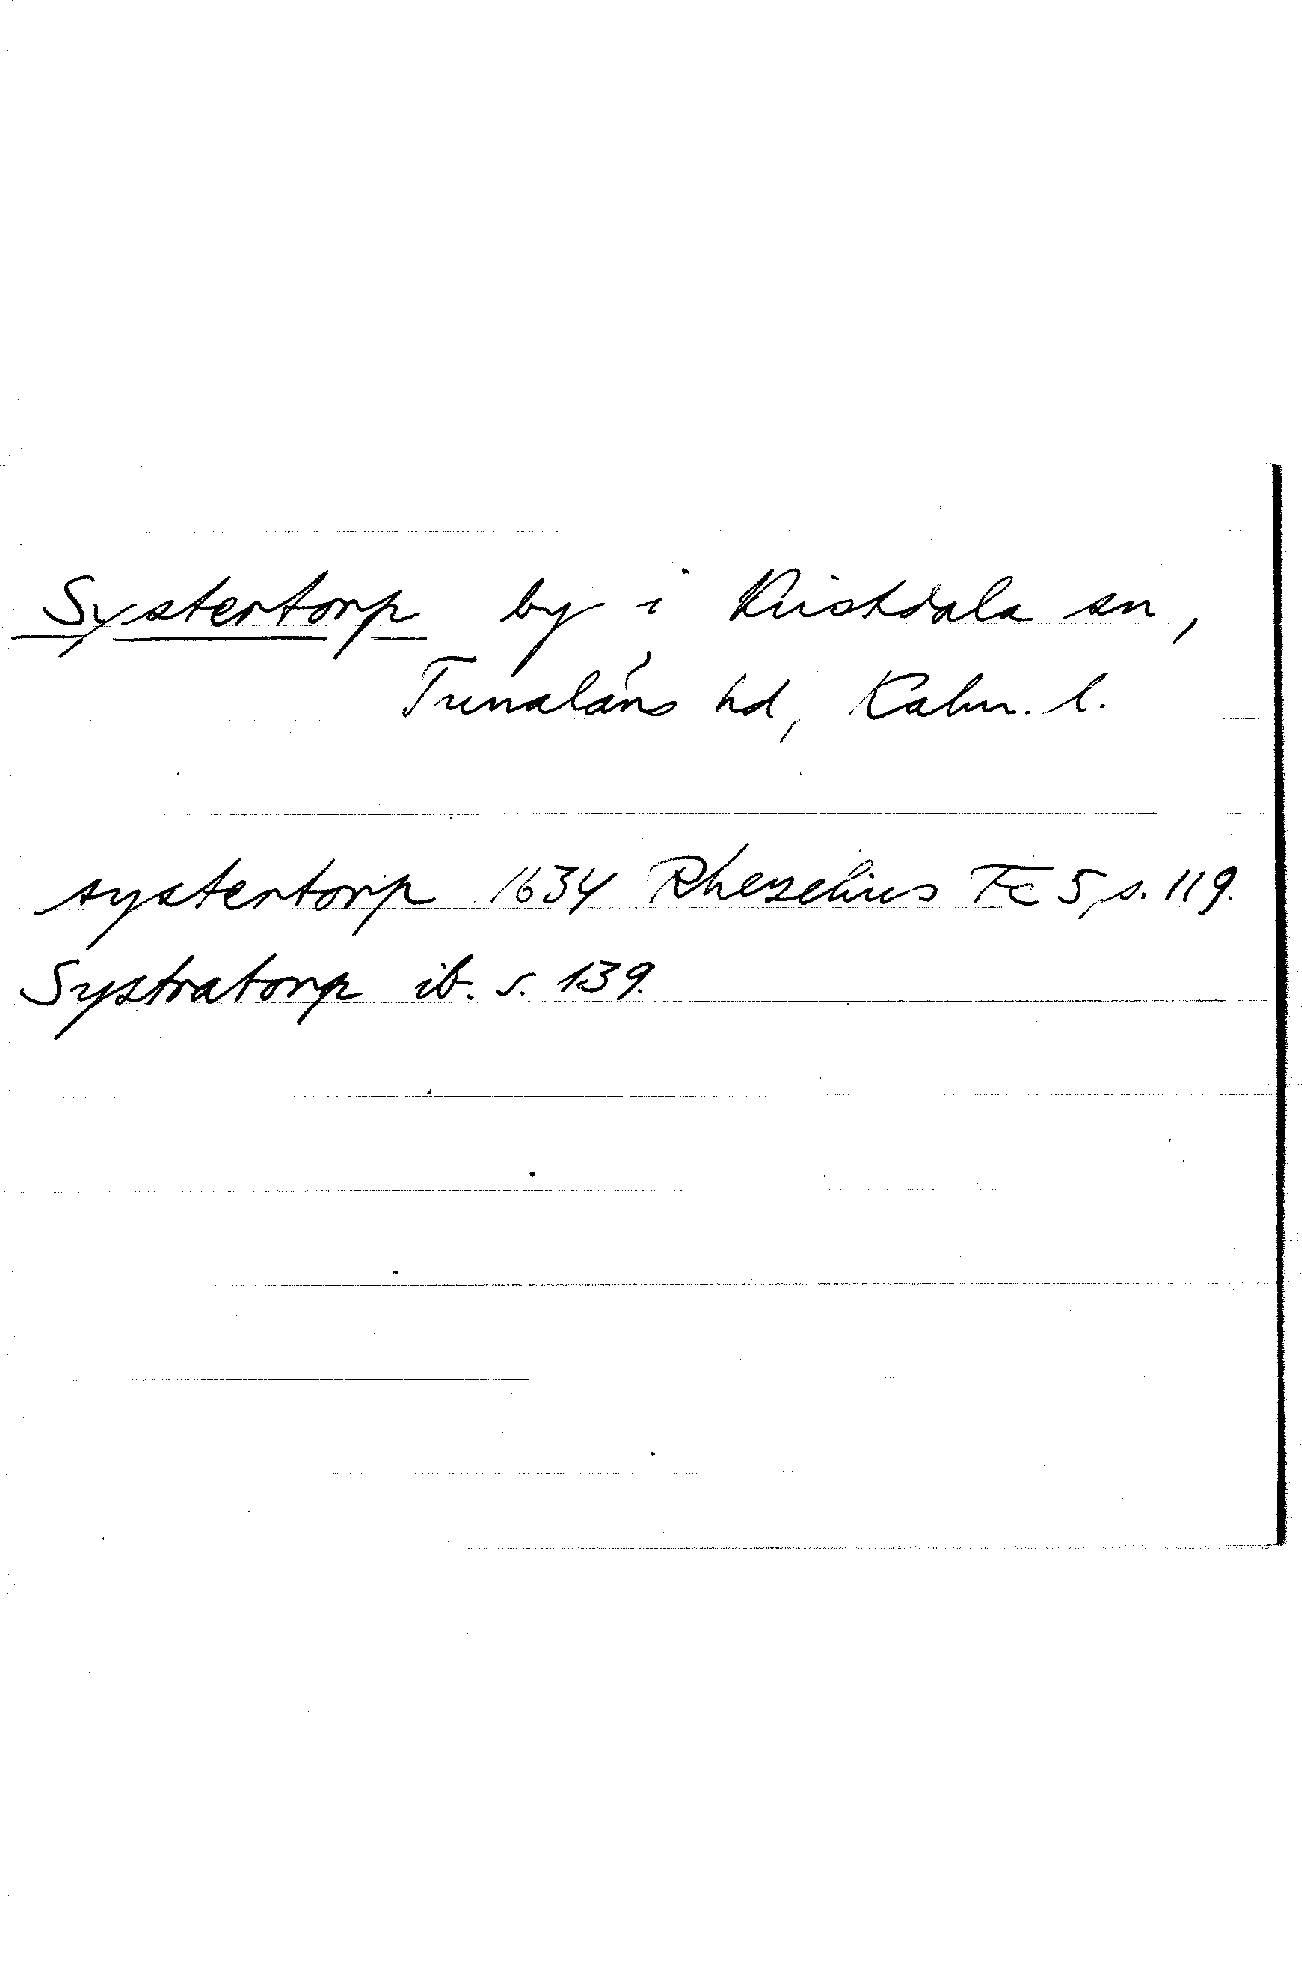 Systertorp by i Kristdala sn,
Tunaläns hd, Kalm. l.
systertorp 1634 Rhezelius Fc 5, s. 119.
Systratorp ib. s. 139.